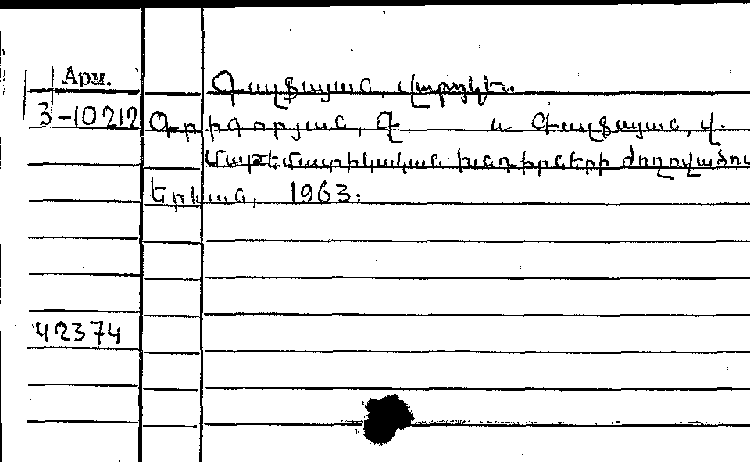 Арм.
Գալֆայան, Վարդկես.
3-10212
Գրիգորյան, Զ և Գալֆայան, Վ.
Մաթեմատիկական խնդիրների ժողովածու
Երևան, 1963.
42374